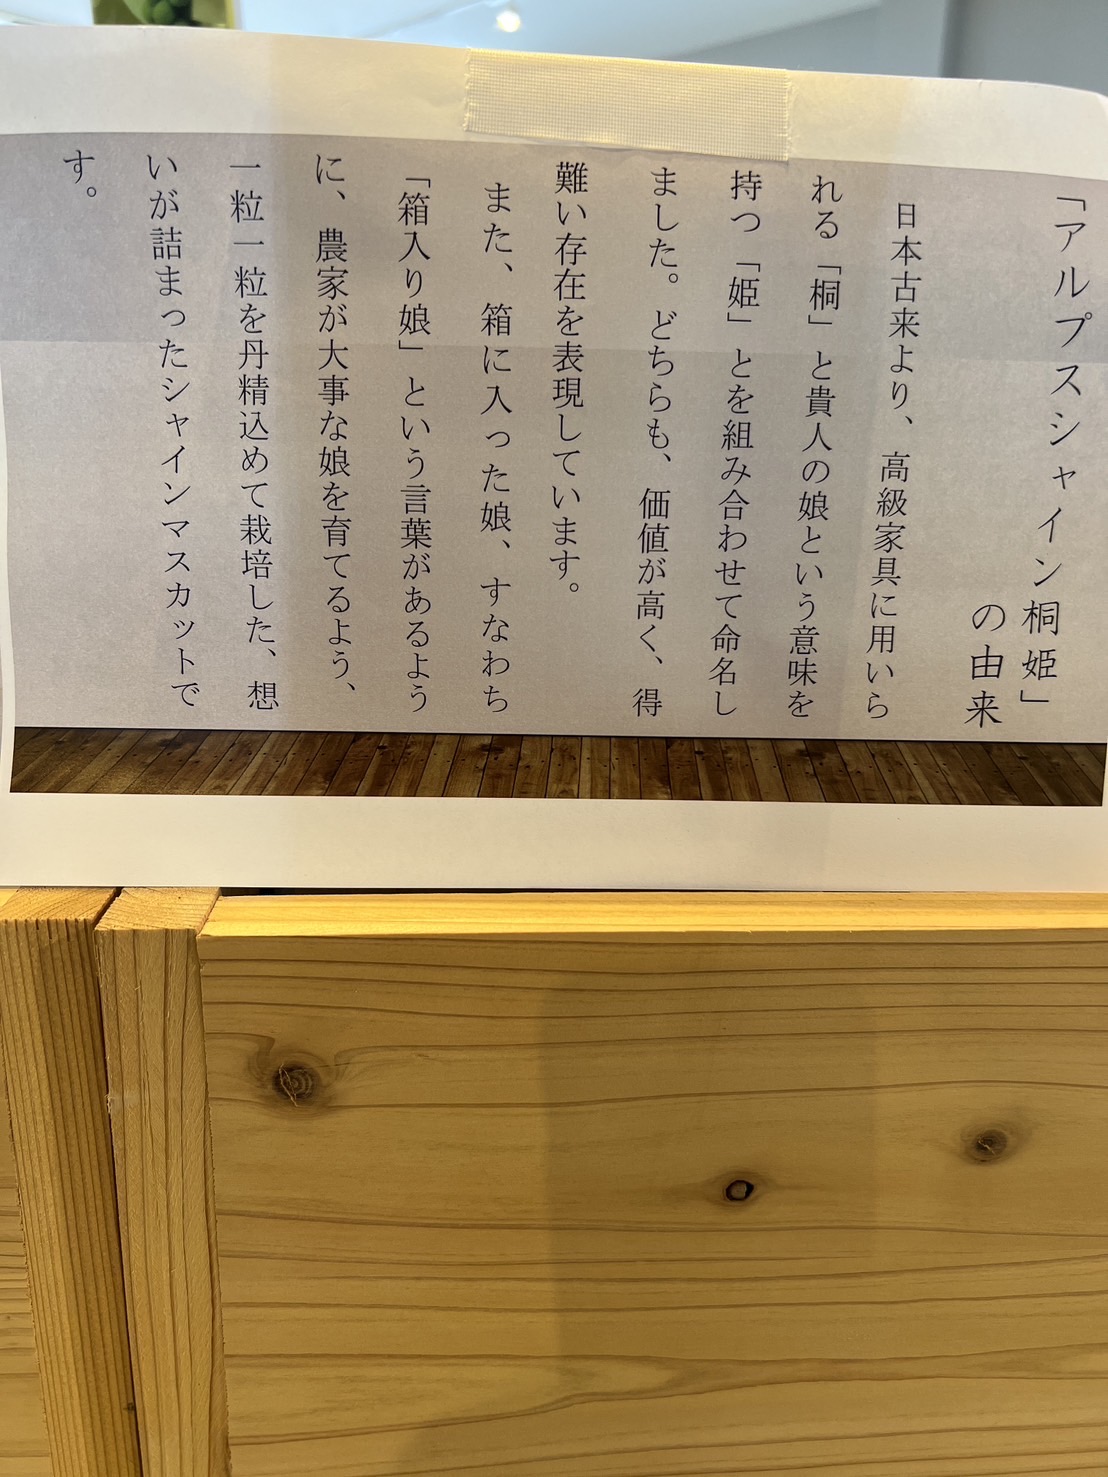 「アルプスシャイン桐姫」
の由来
日本古来より、高級家具に用いら
れる「桐」と貴人の娘という意味を
持つ「姫」とを組み合わせて命名し
ました。どちらも、価値が高く、得
難い存在を表現しています。
また、箱に入った娘、すなわち
「箱入り娘」という言葉があるよう
に、農家が大事な娘を育てるよう、
一粒一粒を丹精込めて栽培した、想
いが詰まったシャインマスカットで
す。